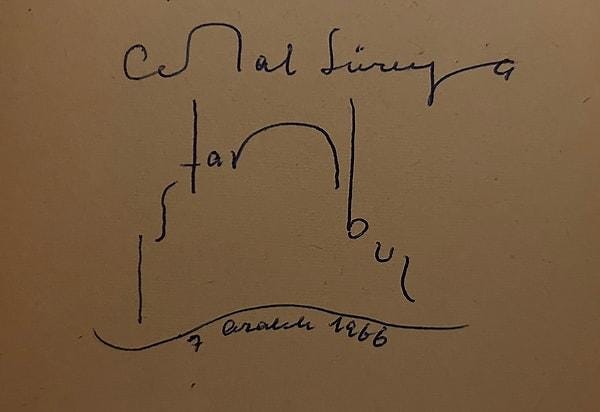 Cemal Süreya
Istanbul
7 aralık 1966